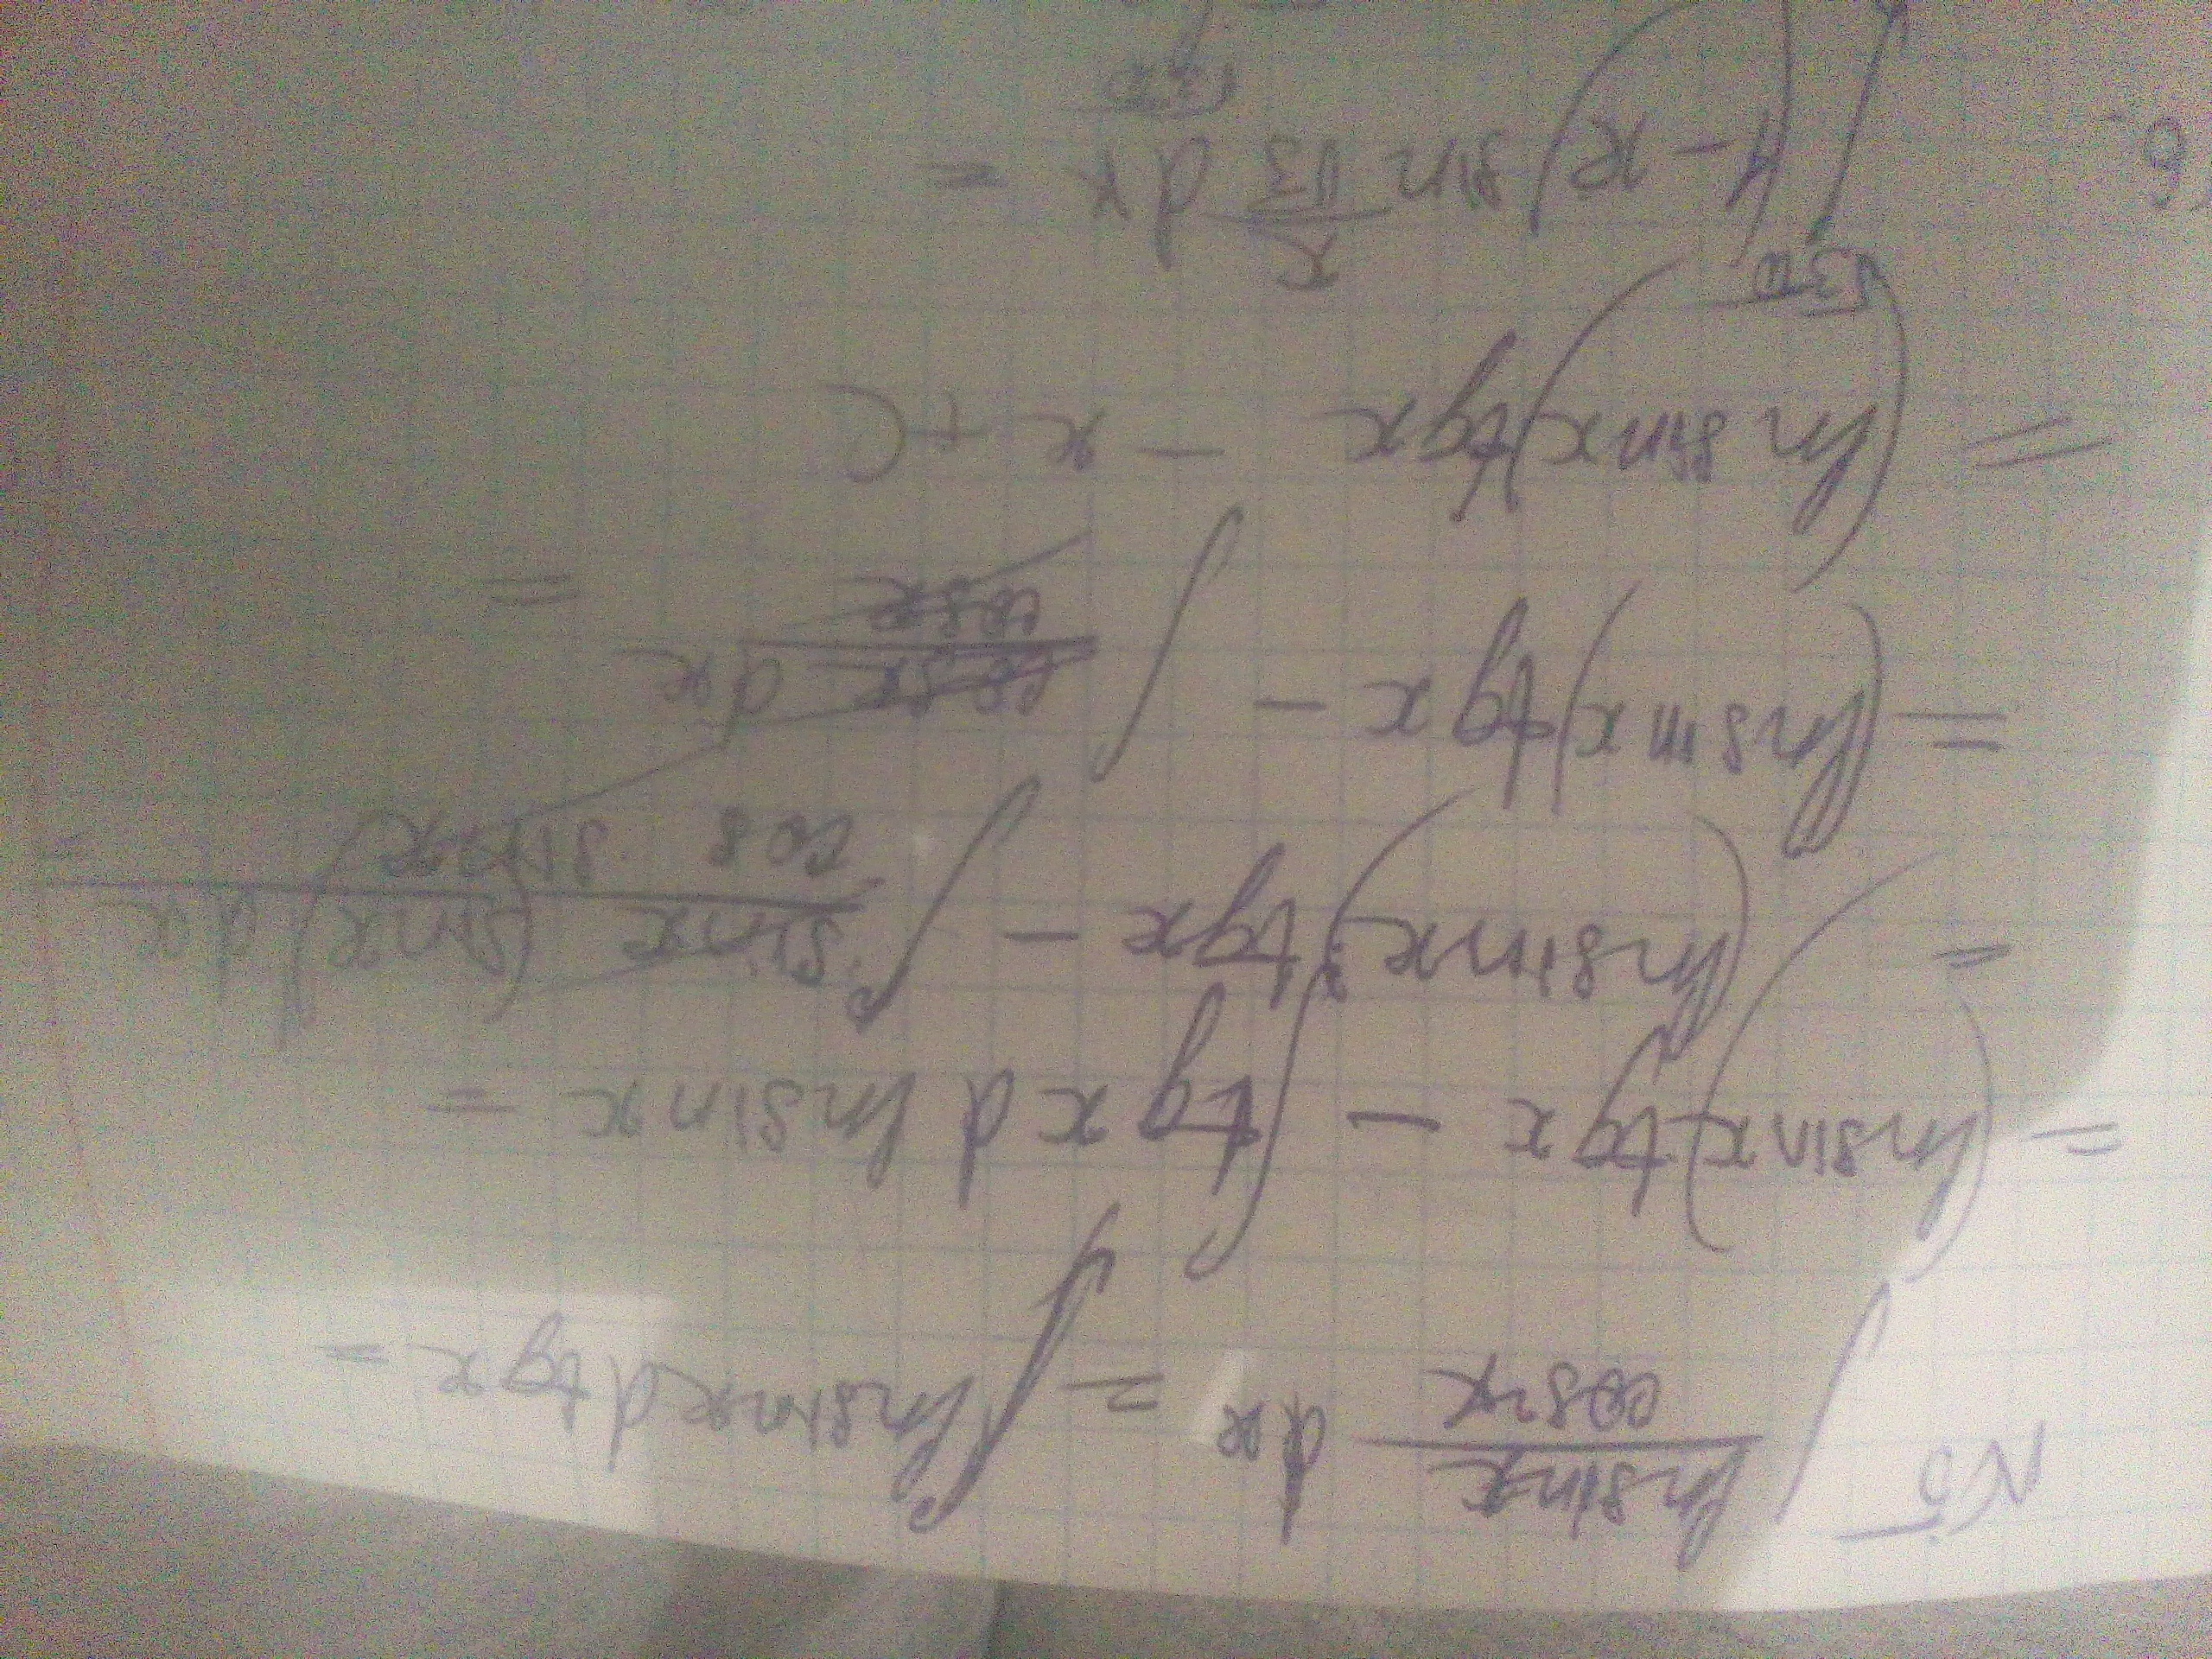 №5 ∫ ln sin x / cos² x dx = ∫ ln sin x d tg x =
= (ln sin x) tg x − ∫ tg x d ln sin x =
= (ln sin x) tg x − ∫ sin x (sin x)' / cos sin x dx =
= (ln sin x) tg x − ∫ cos x / cos x dx =
= (ln sin x) tg x − x + C
6. ∫ (4 − x) sin x/√3 dx =